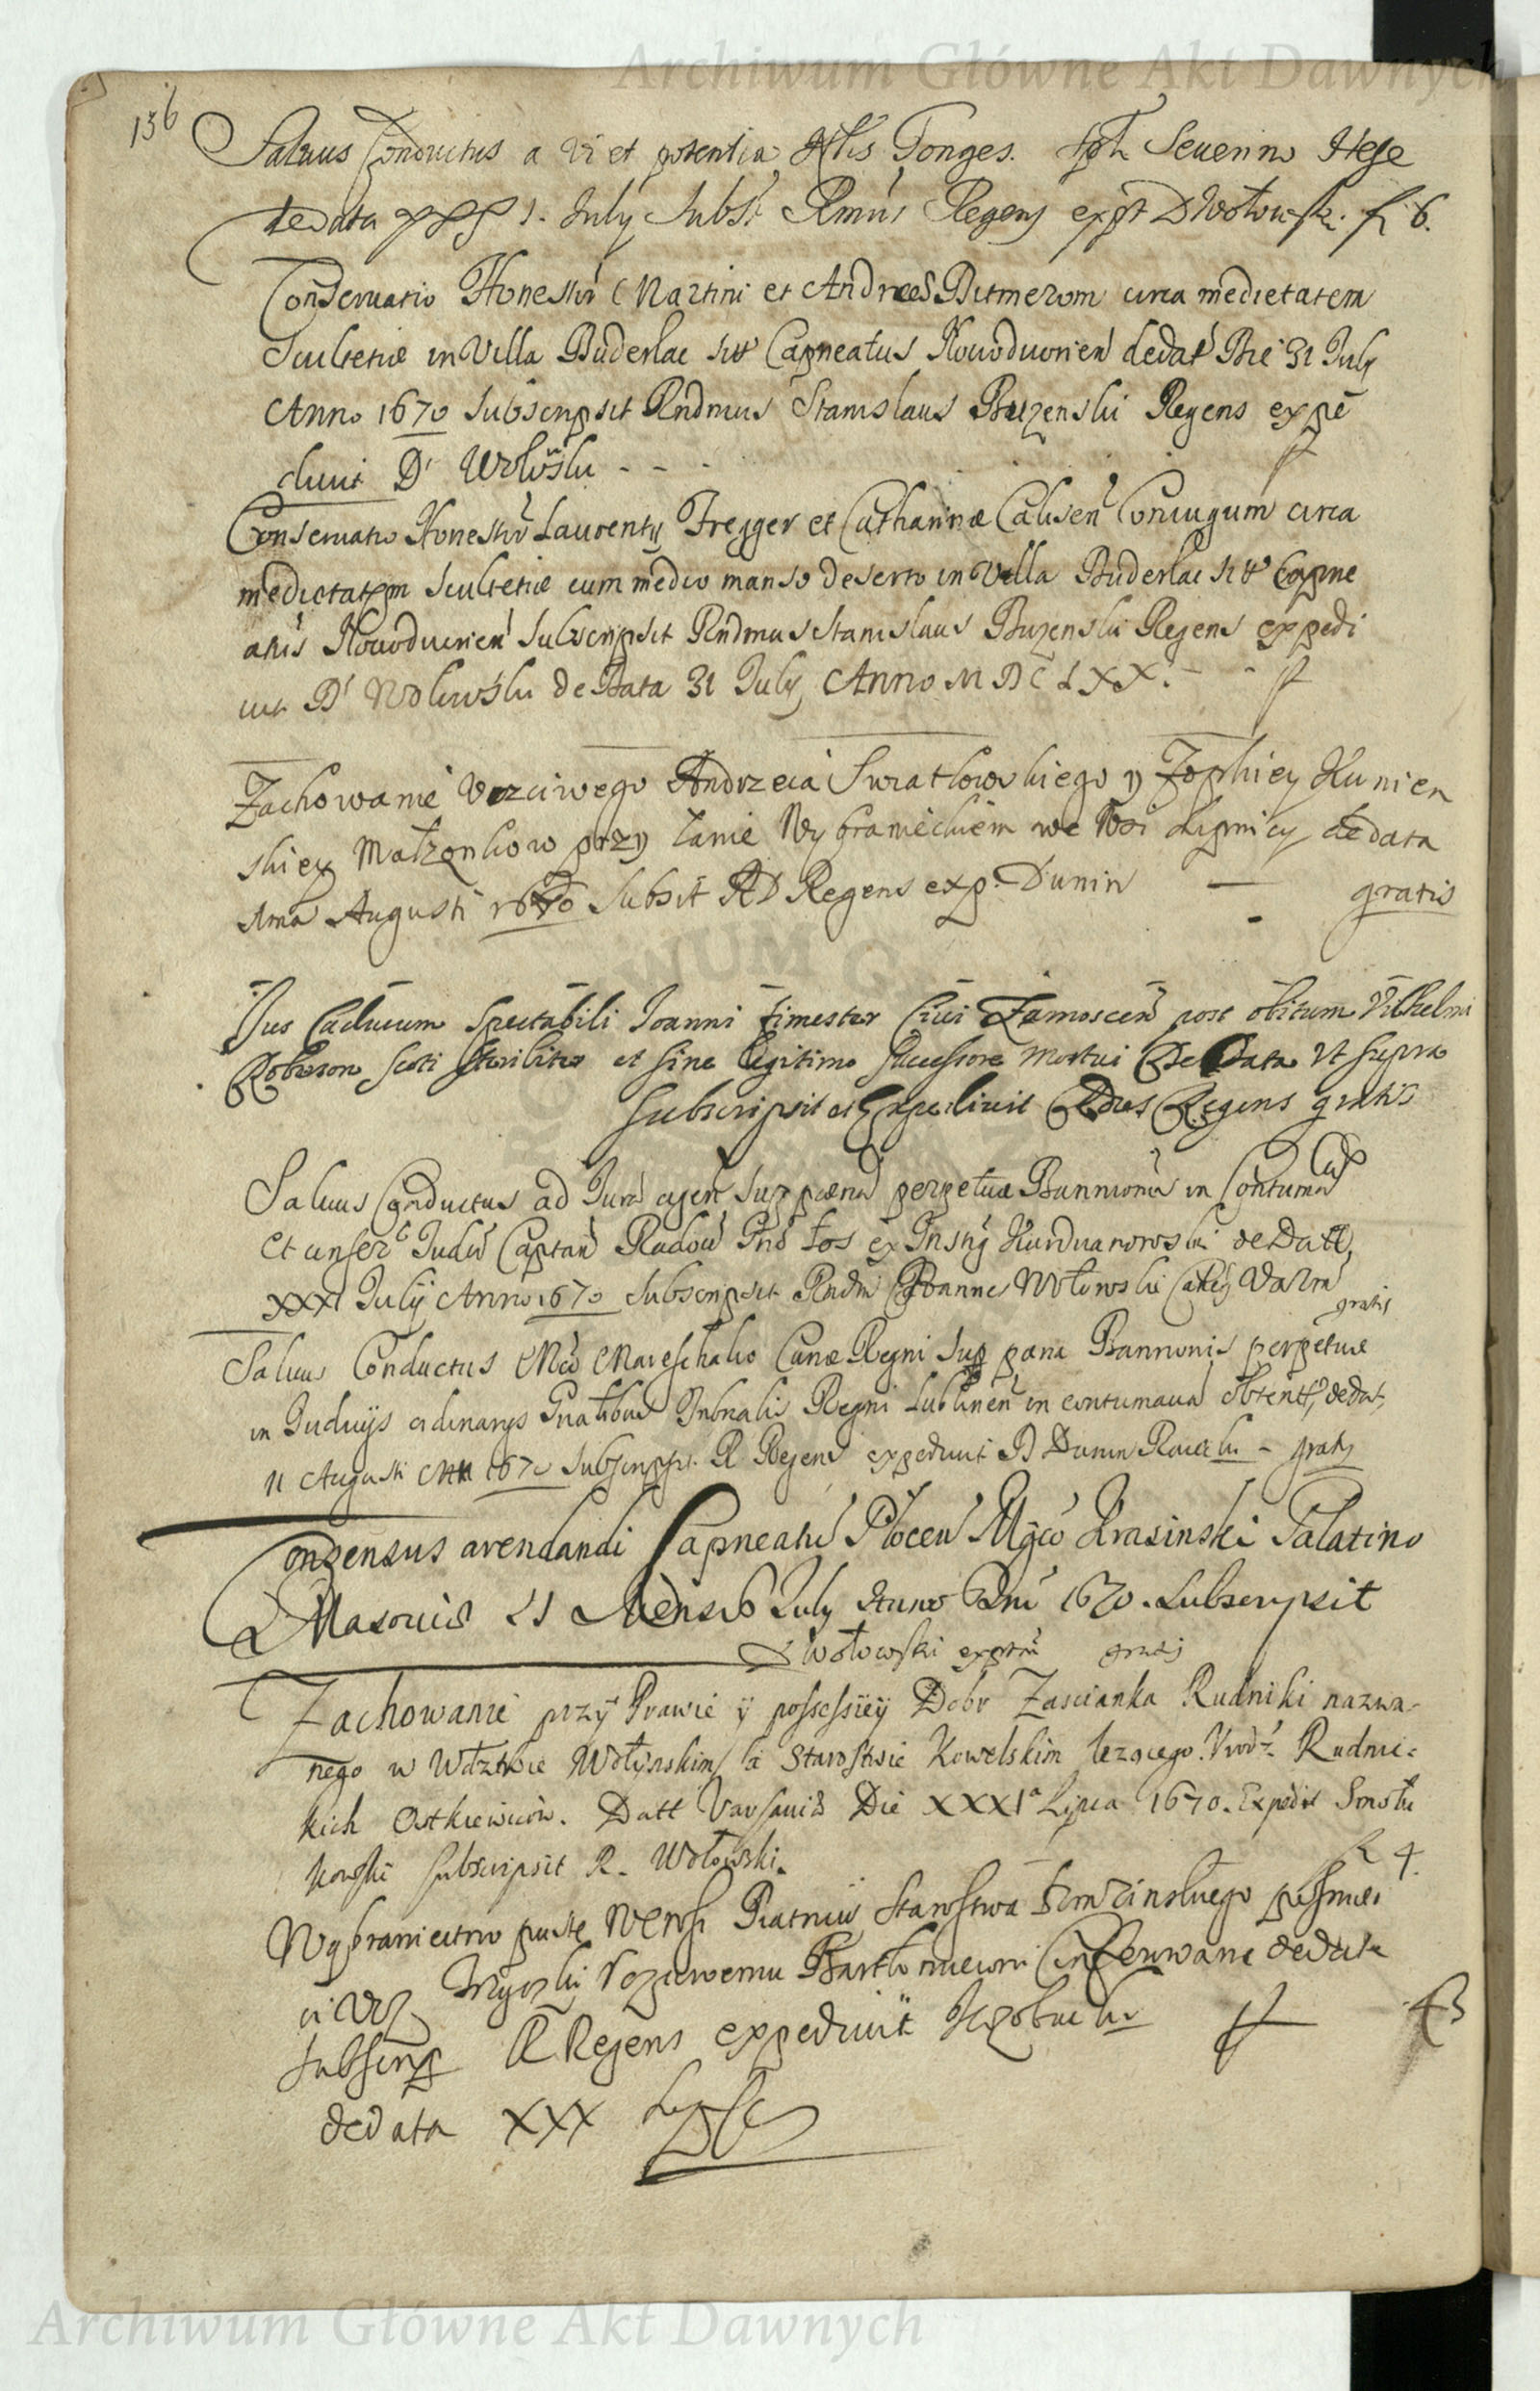 Archiwum Główne Akt Dawnych
156
Saluus Conductus a vi et potentia Tonges. Seuerino Hese
de data 1. July Subst Rmus Regens expt D Wołowski. f 6.
Conseruatio Honestor Martini et Andreas Bitmerom circa medietatem
Scultetiæ in Villa Buderlac sitt Capneatus Nouoduorien dedat Die 31 July
Anno 1670 Subscripsit Rndmus Stanislaus Buzenski Regens expe
diuit D Wolowski - - -
Conseruatio Honestor Laurentij Fregger et Catharinæ Calisen Coniugum circa
medietatem Scultetiæ cum medio manso deserto in Villa Buderlac sitt Capne
atus Nouoduorien Subscripsit Rndmus Stanislaus Buzenski Regens expedi
uit D Wolowski de Data 31 July Anno MDCLXX. - -
Zachowanie Vczciwego Andrzeia Swiatkowskiego y Zophiey Kunien
skiey Małzonkow przy Łanie Wybranieckiem we Wsi Lipnicy de data
1ma Augusti 1670 Subsit RD Regens exp. Dunin — gratis
Jus Caducum Spectabili Joanni Timester Ciui Zamoscen post obitum Vilhelmi
Robeson Scoti Steriliter et sine legitimo Successore Mortui De Data Vt supra
Subscripsit et Expediuit Rdus Regens gratis
Saluus Conductus ad Jura agen Sup pœna perpetuæ Bannionis in Contuma
et Judic Captan Radow ex Insty Kurdwanowski de Datt
XXXI July Anno 1670 Subscripsit Rndm Joannes Wołowski
gratis
Saluus Conductus Mco Mareschalco Curiæ Regni Sup pæna Bannionis perpetuæ
in Judicijs ordinarys Tribnalis Regni Lublinen in contumacia obtent, dedat,
11 Augusti 1670 Subscripsit R Regens expediuit D Dunin Raiecki - gratis
Consensus arendandi Capneatu Plocen Mgco Krasinski Palatino
Masouiæ 21 Mensis July Anno Dni 1670. Subscripsit
Wołowski exptm gratis
Zachowanie przy Prawie ÿ possessiey Dobr Zascianka Rudniki nazwa-
nego w Wdztwie Wołynskim a Starostwie Kowelskim lezącego. Vrodz. Rudnic-
kich Ostkiewiców. Datt Varsauiæ Die XXXIa Lipca 1670. Expedit Smołu
kowski subscripsit R. Wołowski. 4.
Wybraniectwo puste We Wsi Piatnicy Starostwa Łomzinskiego
Vczciwemu Bartłomieiowi Conferowane de data
subscrip R Regens expediuit 43
de data XXX
Archiwum Główne Akt Dawnych